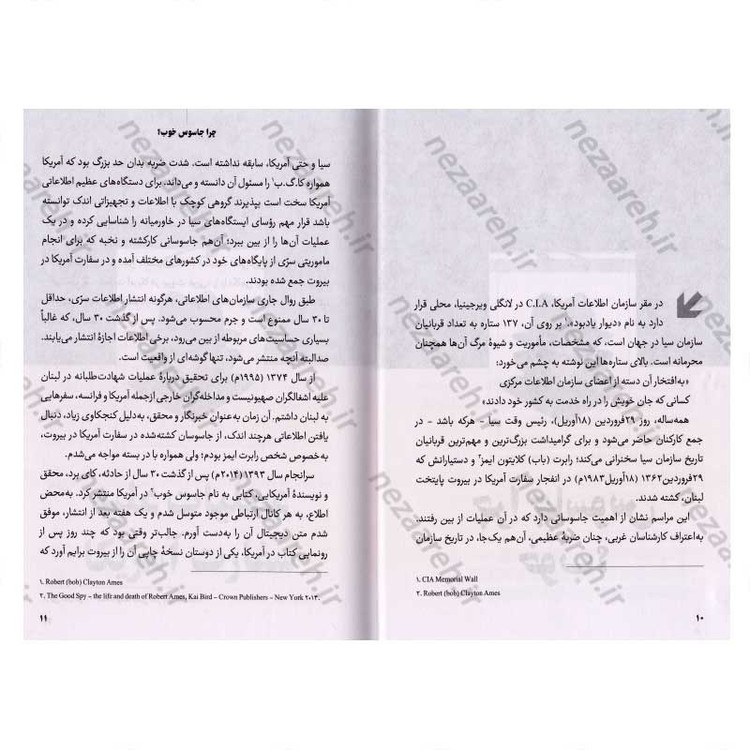 در مقر سازمان اطلاعات آمریکا، C.I.A در لانگلی ویرجینیا، محلی قرار
دارد به نام «دیوار یادبود»،¹ بر روی آن، ۱۳۷ ستاره به تعداد قربانیان
سازمان سیا در جهان است، که مشخصات، مأموریت و شیوهٔ مرگ آن‌ها همچنان
محرمانه است. بالای ستاره‌ها این نوشته به چشم می‌خورد:
«به‌افتخار آن دسته از اعضای سازمان اطلاعات مرکزی
کسانی که جان خویش را در راه خدمت به کشور خود دادند»
همه‌ساله، روز ۲۹فروردین (۱۸آوریل)، رئیس وقت سیا – هرکه باشد – در
جمع کارکنان حاضر می‌شود و برای گرامیداشت بزرگ‌ترین و مهم‌ترین قربانیان
تاریخ سازمان سیا سخنرانی می‌کند؛ رابرت (باب) کلایتون ایمز² و دستیارانش که
۲۹فروردین۱۳۶۲ (۱۸آوریل۱۹۸۳م) در انفجار سفارت آمریکا در بیروت پایتخت
لبنان، کشته شدند.
این مراسم نشان از اهمیت جاسوسانی دارد که در آن عملیات از بین رفتند.
به‌اعتراف کارشناسان غربی، چنان ضربهٔ عظیمی، آن‌هم یک‌جا، در تاریخ سازمان
۱. CIA Memorial Wall
۲. Robert (bob) Clayton Ames
۱۰
چرا جاسوس خوب؟
سیا و حتی آمریکا، سابقه نداشته است. شدت ضربه بدان حد بزرگ بود که آمریکا
همواره کا.گ.ب¹ را مسئول آن دانسته و می‌داند. برای دستگاه‌های عظیم اطلاعاتی
آمریکا سخت است بپذیرند گروهی کوچک با اطلاعات و تجهیزاتی اندک توانسته
باشد قرار مهم رؤسای ایستگاه‌های سیا در خاورمیانه را شناسایی کرده و در یک
عملیات آن‌ها را از بین ببرد؛ آن‌هم جاسوسانی کارکشته و نخبه که برای انجام
ماموریتی سرّی از پایگاه‌های خود در کشورهای مختلف آمده و در سفارت آمریکا در
بیروت جمع شده بودند.
طبق روال جاری سازمان‌های اطلاعاتی، هرگونه انتشار اطلاعات سرّی، حداقل
تا ۳۰ سال ممنوع است و جرم محسوب می‌شود. پس از گذشت ۳۰ سال، که غالباً
بسیاری حساسیت‌های مربوطه از بین می‌رود، برخی اطلاعات اجازهٔ انتشار می‌یابند.
صدالبته آنچه منتشر می‌شود، تنها گوشه‌ای از واقعیت است.
از سال ۱۳۷۴ (۱۹۹۵م) برای تحقیق دربارهٔ عملیات شهادت‌طلبانه در لبنان
علیه اشغالگران صهیونیست و مداخله‌گران خارجی ازجمله آمریکا و فرانسه، سفرهایی
به لبنان داشتم. آن زمان به‌عنوان خبرنگار و محقق، به‌دلیل کنجکاوی زیاد، دنبال
یافتن اطلاعاتی هرچند اندک، از جاسوسان کشته‌شده در سفارت آمریکا در بیروت،
به‌خصوص شخص رابرت ایمز بودم؛ ولی همواره با در بسته مواجه می‌شدم.
سرانجام سال ۱۳۹۳ (۲۰۱۴م) پس از گذشت ۳۰ سال از حادثه، کای برد، محقق
و نویسندهٔ آمریکایی، کتابی به نام جاسوس خوب² در آمریکا منتشر کرد. به‌محض
اطلاع، به هر کانال ارتباطی موجود متوسل شدم و یک هفته بعد از انتشار، موفق
شدم متن دیجیتال آن را به‌دست آورم. جالب‌تر وقتی بود که چند روز پس از
رونمایی کتاب در آمریکا، یکی از دوستان نسخهٔ چاپی آن را از بیروت برایم آورد که
۱. Robert (bob) Clayton Ames
۲. The Good Spy – the lift and death of Robert Ames, Kai Bird – Crown Publishers – New York ۲۰۱۴.
۱۱
nezaareh.ir